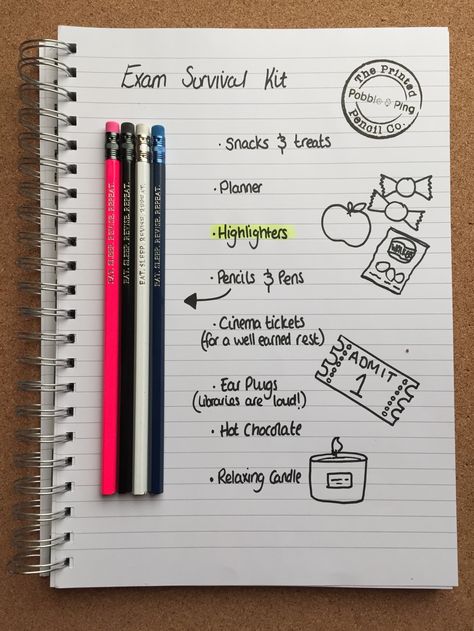 Exam Survival Kit
The Printed
Pobble & Ping
Pencil Co.
· Snacks & treats
· Planner
· Highlighters
· Pencils & Pens
· Cinema tickets
(for a well earned rest)
ADMIT
1
· Ear Plugs
(libraries are loud!)
· Hot Chocolate
· Relaxing Candle
EAT. SLEEP. REVISE. REPEAT.
EAT. SLEEP. REVISE. REPEAT.
EAT. SLEEP. REVISE. REPEAT.
EAT. SLEEP. REVISE. REPEAT.